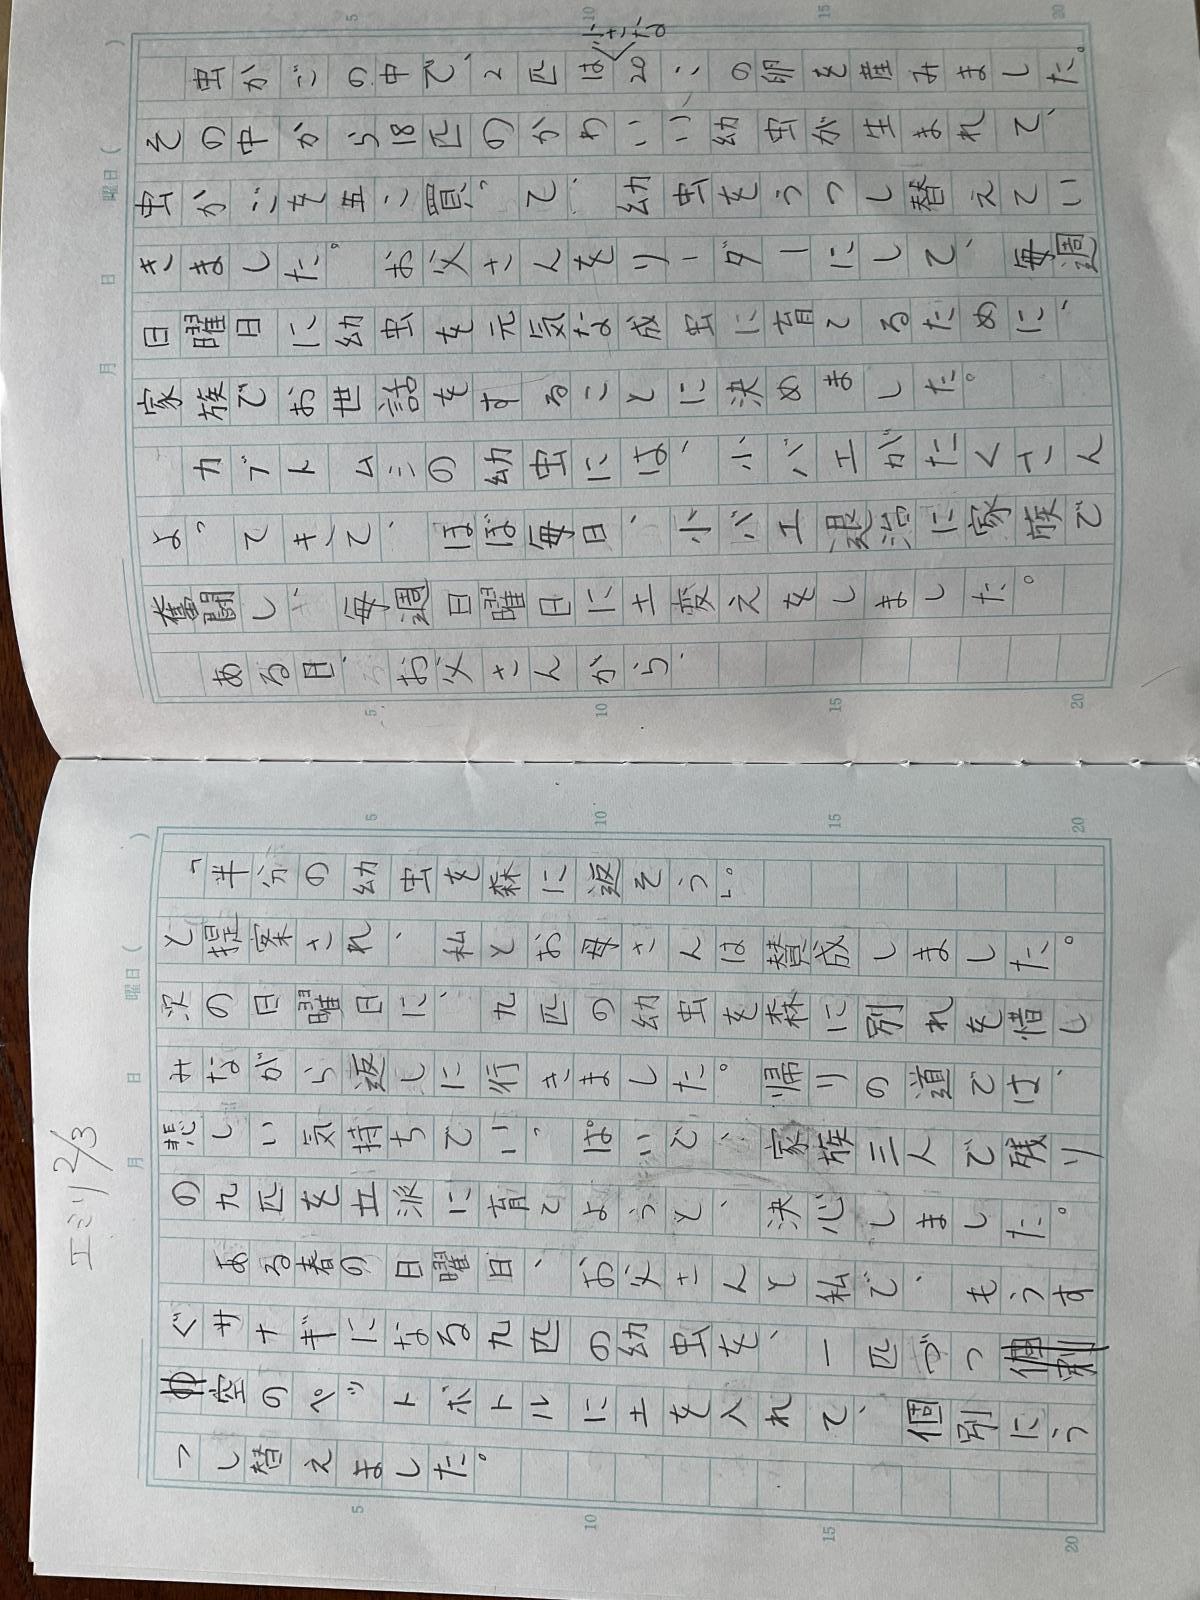 虫かごの中で、2匹は小さな20この卵を産みました。
その中から18匹のかわいい、幼虫が生まれて、
虫かごを五こ買って、幼虫をうつし替えてい
きました。お父さんをリーダーにして、毎週
日曜日に幼虫を元気な成虫に育てるために、
家族でお世話をすることに決めました。
カブトムシの幼虫には、小バエがたくさん
よってきて、ほぼ毎日、小バエ退治に家族で
奮闘し、毎週日曜日に土変えをしました。
ある日、お父さんから、
「半分の幼虫を森に返そう。」
と提案され、私とお母さんは賛成しました。
次の日曜日に、九匹の幼虫を森に別れを惜し
みながら返しに行きました。帰りの道では、
悲しい気持ちでいっぱいで、家族三人で残り
の九匹を立派に育てようと、決心しました。
ある春の日曜日、お父さんと私で、もうす
ぐサナギになる九匹の幼虫を、一匹づつ個別
の空のペットボトルに土を入れて、個別にう
つし替えました。
エミリ 2/3
月 日 曜日 ( )
月 日 曜日 ( )
5 10 15 20
5 10 15 20
5 10 15 20
5 10 15 20